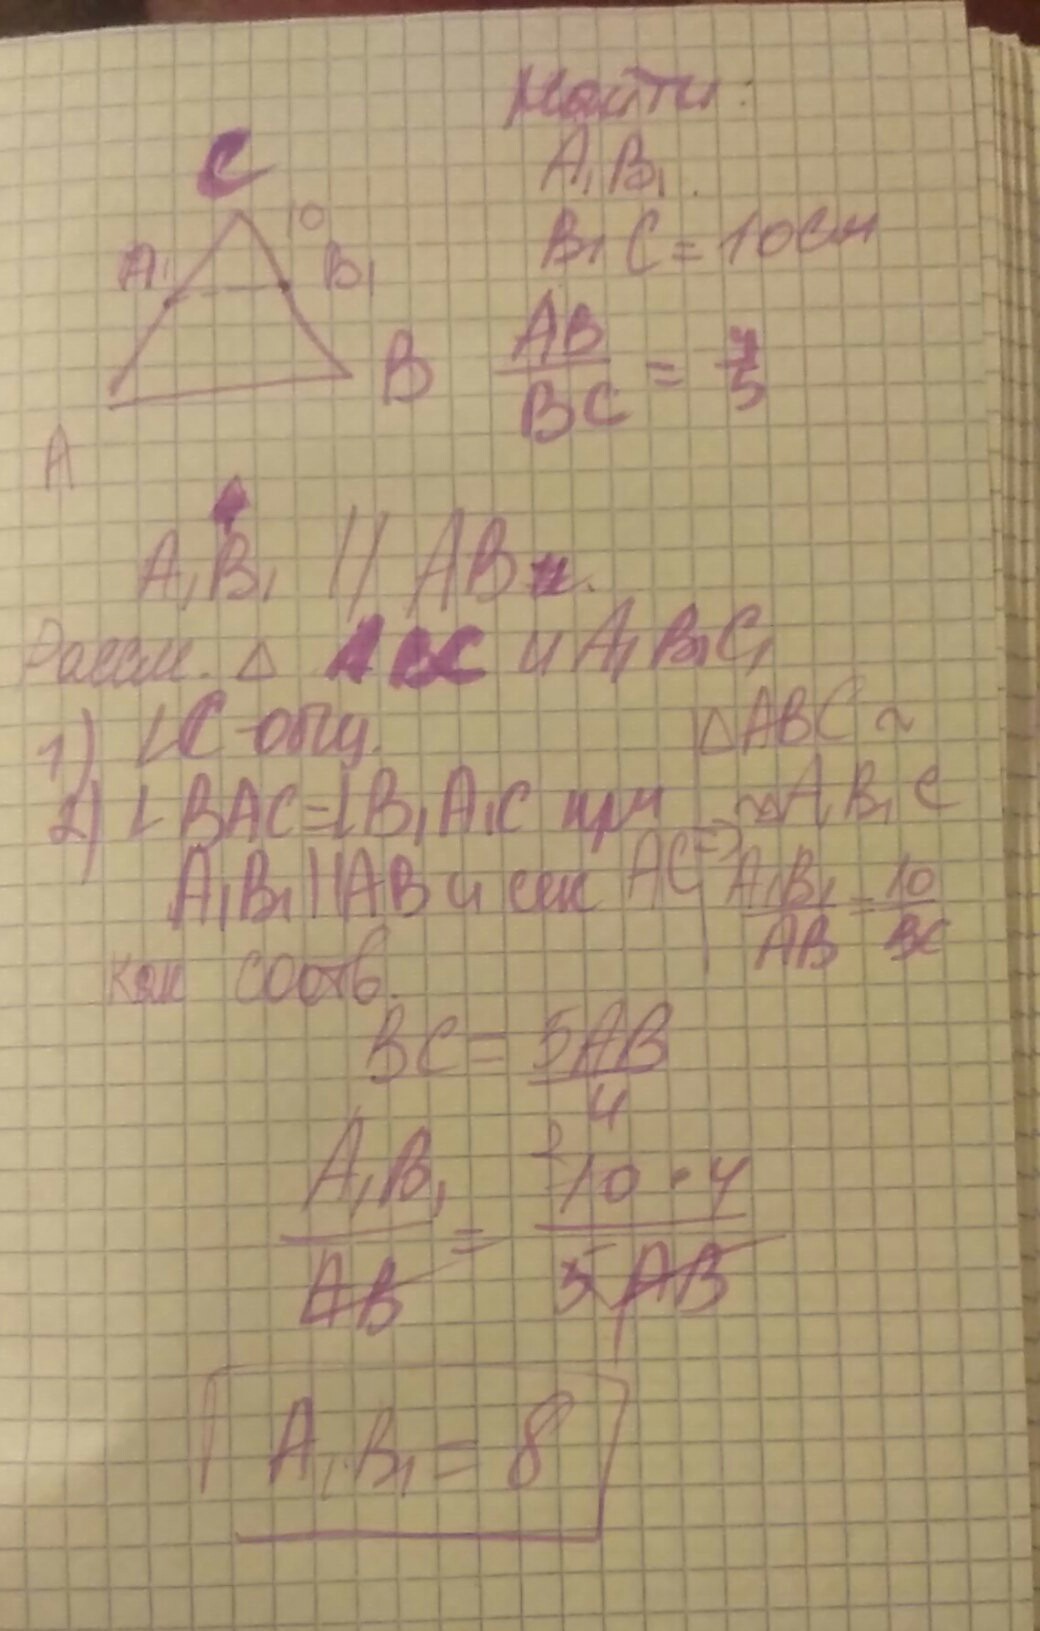 Найти:
A₁B₁.
B₁C = 10см
AB/BC = 4/5
C
10
A₁ B₁
B
A
A₁B₁ || AB и.
Рассм. Δ ABC и A₁B₁C₁
1) ∠C-общ.
2) ∠BAC=∠B₁A₁C при
A₁B₁||AB и сек AC
как соотв.
ΔABC ~
~ΔA₁B₁C
=> A₁B₁/AB = 10/BC
BC = 5AB/4
A₁B₁/AB = 10·4/5AB
2
A₁B₁ = 8